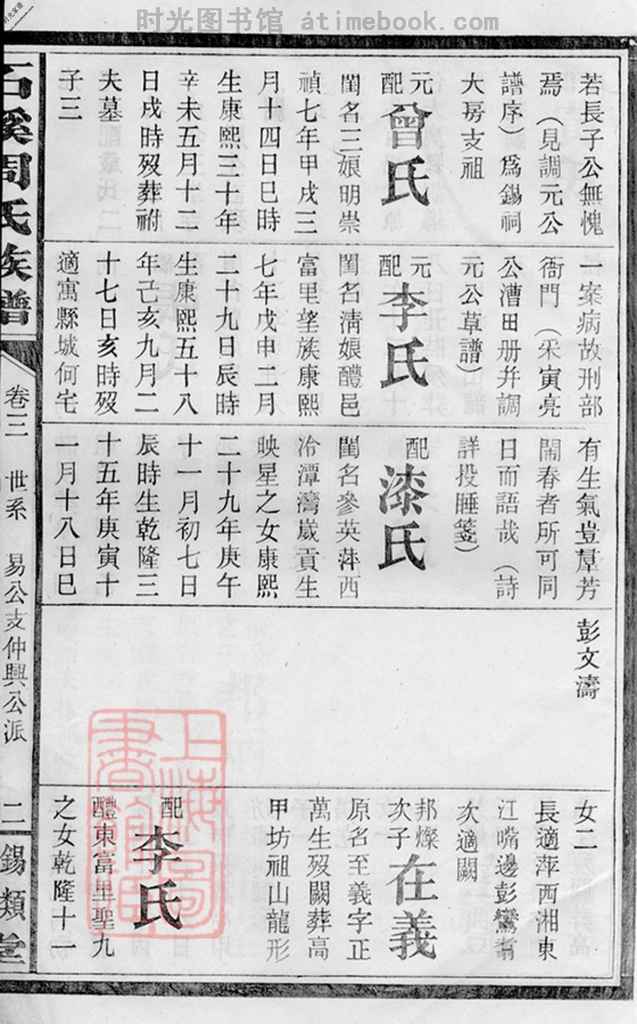 时光图书馆 atimebook.com
若長子公無愧
焉（見調元公
譜序）爲錫祠
大房支祖
元配曾氏
閨名三娘明崇
禎七年甲戌三
月十四日巳時
生康熙三十年
辛未五月十二
日戌時歿葬祔
夫墓
子三
一案病故刑部
衙門（釆寅亮
公漕田册幷調
元公草譜）
元配李氏
閨名淸娘醴邑
富里望族康熙
七年戊申二月
二十九日辰時
生康熙五十八
年己亥九月二
十七日亥時歿
適寓縣城何宅
有生氣豈羣芳
鬧春者所可同
日而語哉（詩
詳投睡箋）
配漆氏
閨名參英萍西
冷潭灣歲貢生
映星之女康熙
二十九年庚午
十一月初七日
辰時生乾隆三
十五年庚寅十
一月十八日巳
彭文濤
女二
長適萍西湘東
江嘴邊彭鸞翥
次適闕
邦燦次子在義
原名至義字正
萬生歿闕葬高
甲坊祖山龍形
配李氏
醴東富里聖九
之女乾隆十一
石溪周氏族譜
卷三 世系 易公支仲興公派 二 錫類堂
上海圖書館藏